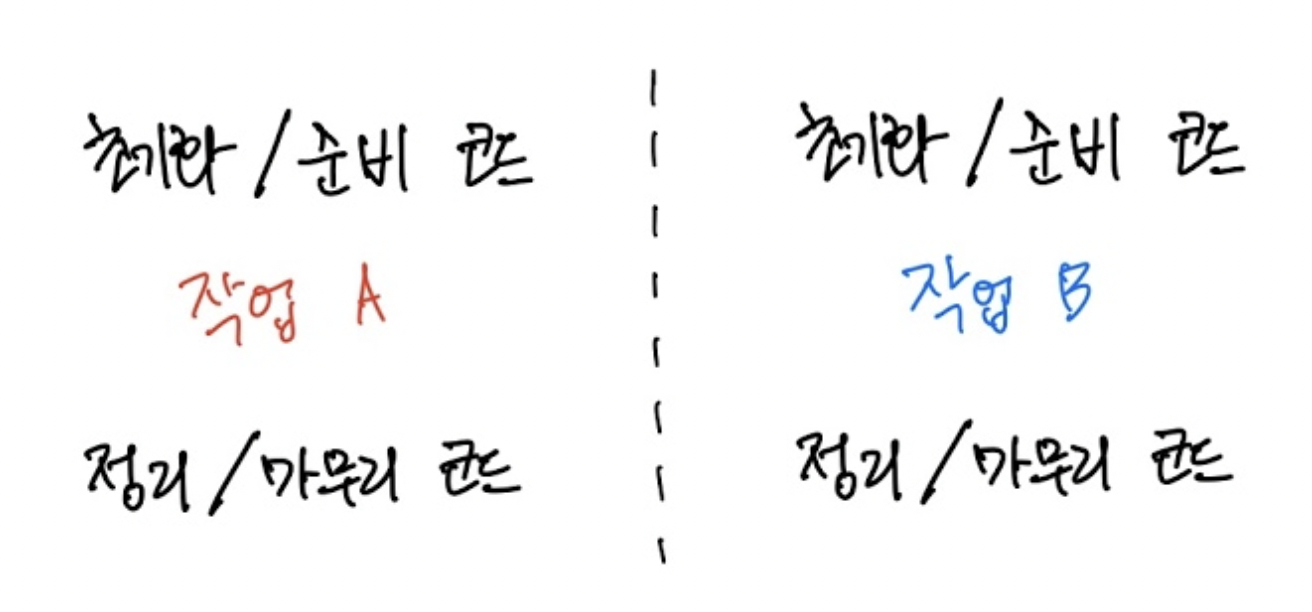 초기화 / 준비 코드
작업 A
정리 / 마무리 코드
초기화 / 준비 코드
작업 B
정리 / 마무리 코드